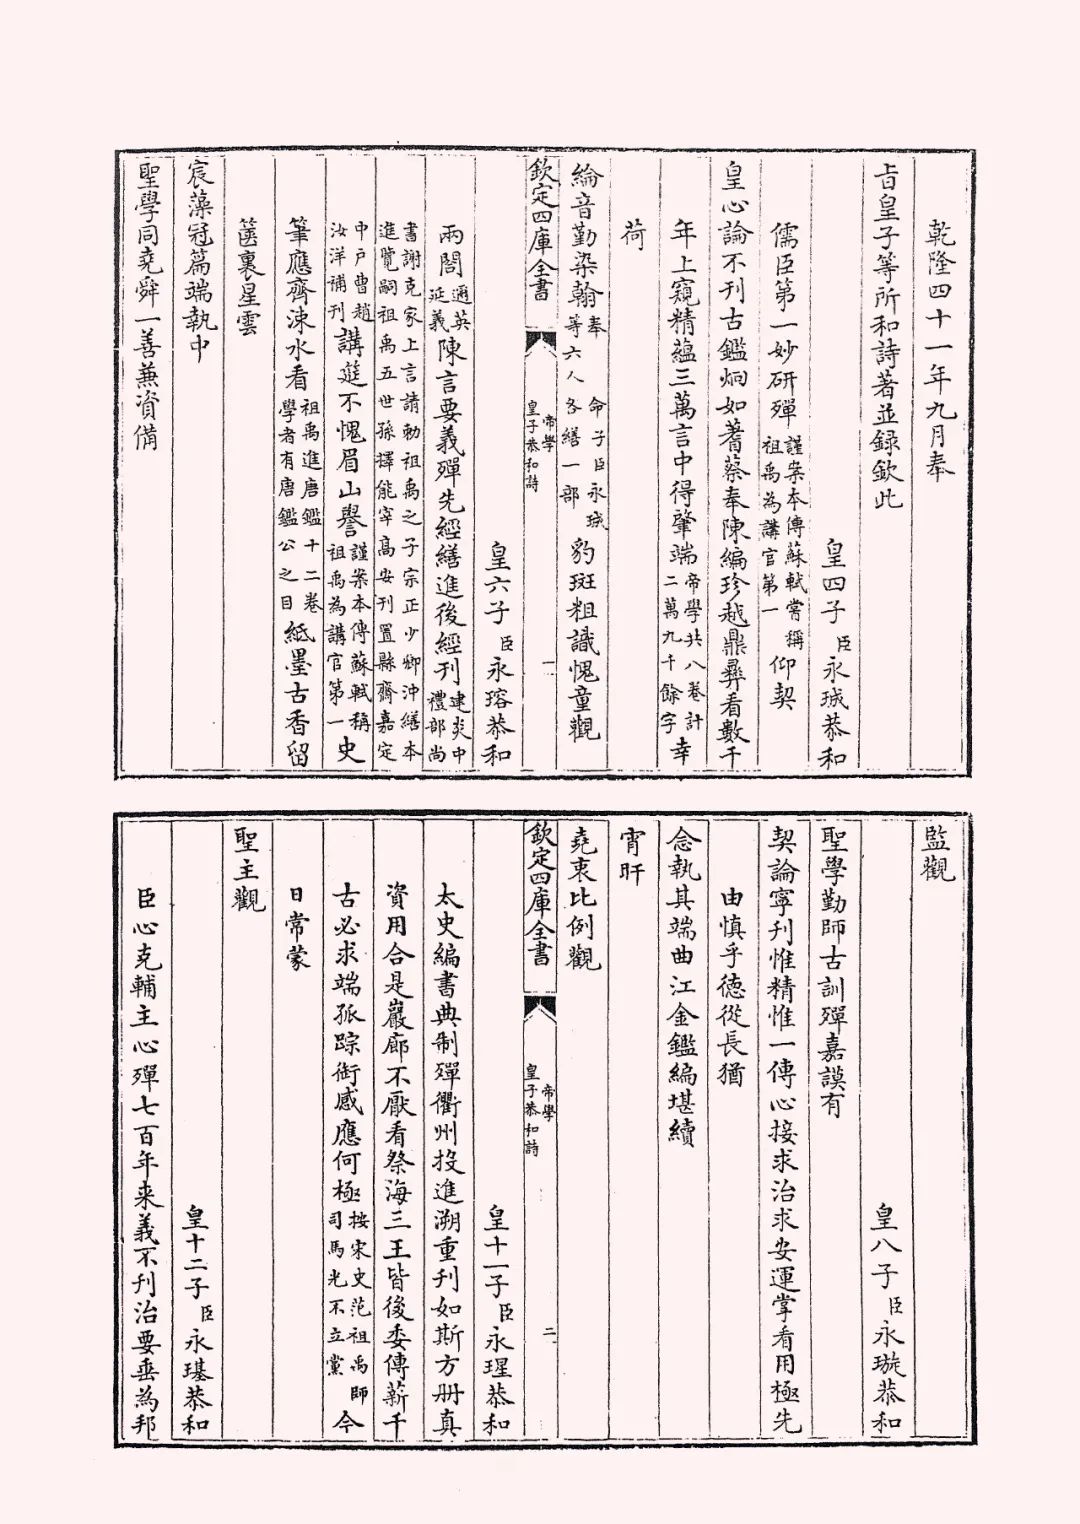 乾隆四十一年九月奉
旨皇子等所和詩著並録欽此
皇四子臣永珹恭和
儒臣第一妙研殫謹案本傳蘇軾嘗稱祖禹為講官第一仰契
皇心論不刊古鑑炯如蓍蔡奉陳編珍越鼎彝看數千
年上窺精蘊三萬言中得肇端帝學共八卷計二萬九千餘字幸
荷
綸音勤染翰奉命子臣永珹等六人各繕一部豹斑粗識愧童觀
欽定四庫全書 帝學 皇子恭和詩 一
皇六子臣永瑢恭和
兩閣邇英延義陳言要義殫先經繕進後經刊建炎中禮部尚
書謝克家上言請勅祖禹之子宗正少卿沖繕本進覽嗣祖禹五世孫擇能宰高安刊置縣齋嘉定
中戶曹趙汝洋補刊講筵不愧眉山譽謹案本傳蘇軾稱祖禹為講官第一史
筆應齊涑水看祖禹進唐鑑十二卷學者有唐鑑公之目紙墨古香留
篋裏星雲
宸藻冠篇端執中
聖學同堯舜一善兼資備
監觀
皇八子臣永璇恭和
聖學勤師古訓殫嘉謨有
契論寧刊惟精惟一傳心接求治求安運掌看用極先
由慎乎德從長猶
念執其端曲江金鑑編堪續
宵旰
堯衷比例觀
欽定四庫全書 帝學 皇子恭和詩 二
皇十一子臣永瑆恭和
太史編書典制殫衢州投進溯重刊如斯方册真
資用合是巖廊不厭看祭海三王皆後委傳薪千
古必求端孤踪衔感應何極按宋史范祖禹師司馬光不立黨今
日常蒙
聖主觀
皇十二子臣永璂恭和
臣心克輔主心殫七百年来義不刊治要垂為邦